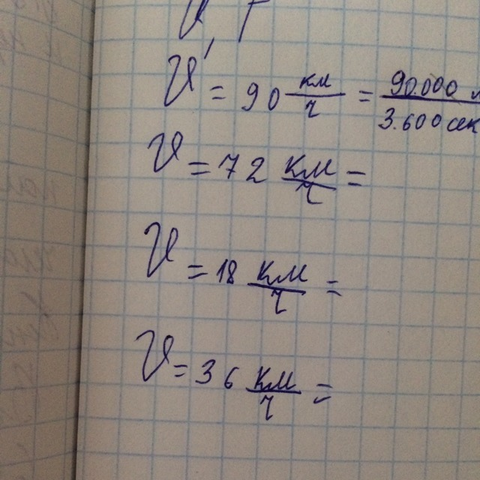 V = 90 км/ч = 90.000 / 3.600 сек
V = 72 км/ч =
V = 18 км/ч =
V = 36 км/ч =